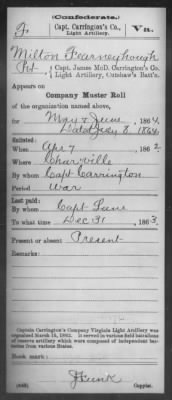 (Confederate.)
F. Capt. Carrington's Co., Light Artillery. Va.
Milton Fearneyhough
Pvt., Capt. James McD. Carrington's Co. Light Artillery, Cutshaw's Batt'n.
Appears on
Company Muster Roll
of the organization named above,
for May & June, 1864.
Dated July 8, 1864
Enlisted:
When Apr 7, 1862
Where Char'ville
By whom Capt Carrington
Period War
Last paid:
By whom Capt
To what time Dec 31, 1863.
Present or absent Present
Remarks:
Captain Carrington's Company Virginia Light Artillery was
organized March 15, 1862. It served in various field battalions
of reserve artillery which were composed of independent bat-
teries from various States.
Book mark:
(642)
Copyist.